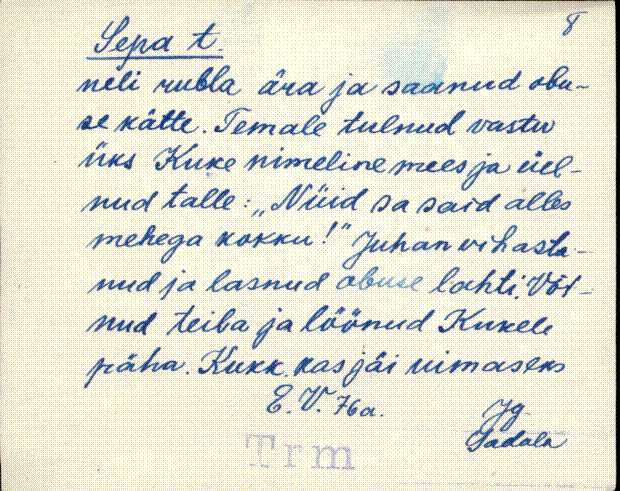 8
Sepa t.
neli rubla ära ja saanud obu-
se kätte. Temale tulnud vastu
üks Kuke nimeline mees ja üel-
nud talle: „Nüid sa said alles
mehega kokku!" Juhan vihasta-
nud ja lasnud obuse lahti. Võt-
nud teiba ja löönud Kukele
päha. Kukk kas jäi uimaseks
E. V. 76 a.
Jg
Sadala
Trm